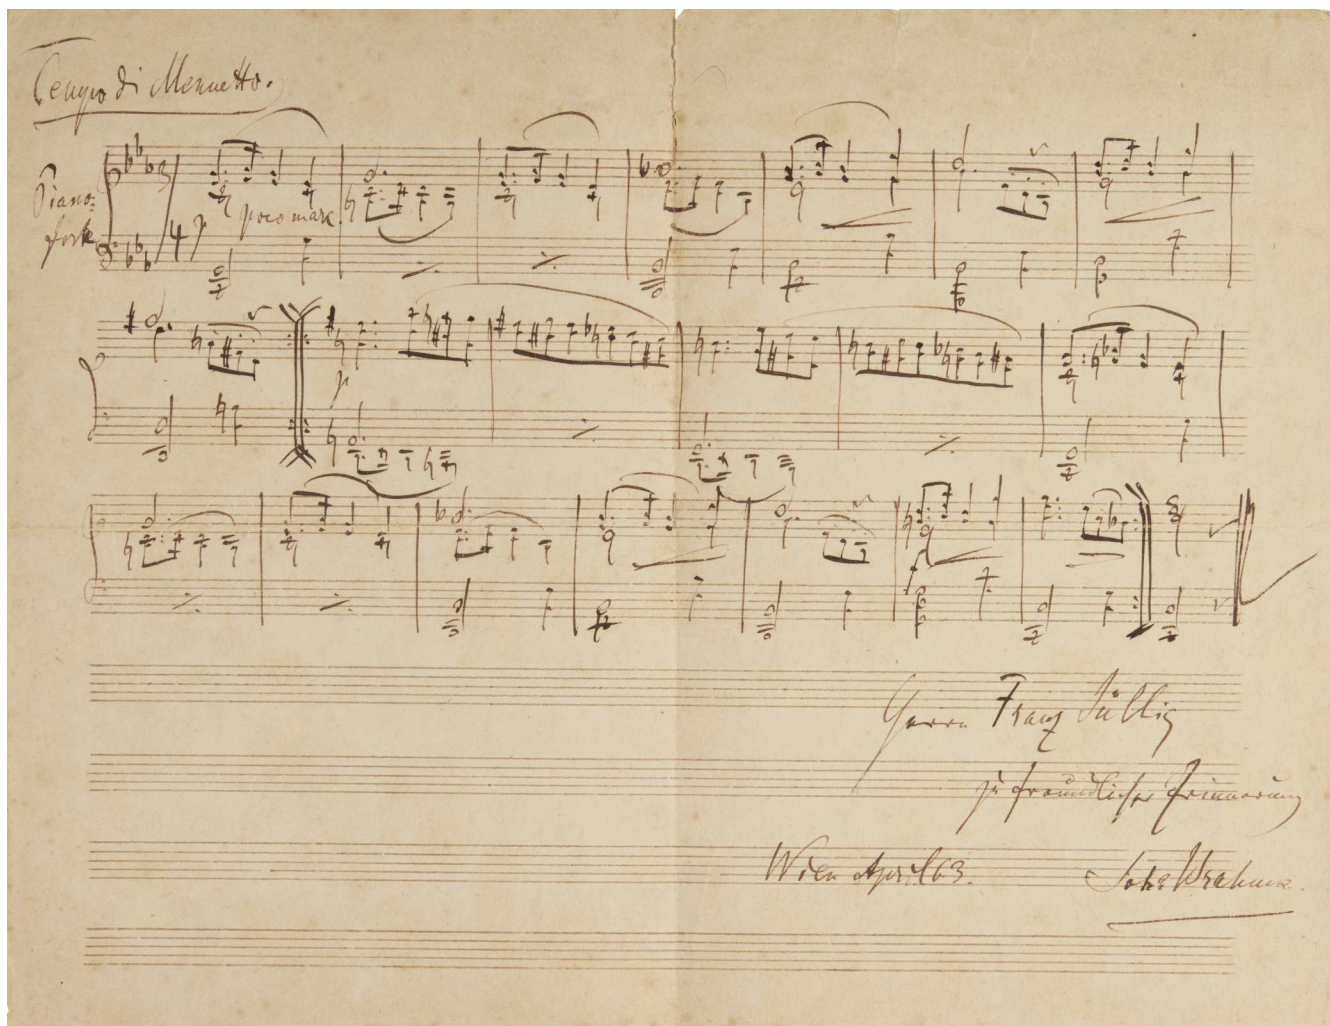 Tempo di Menuetto.
Piano-
forte
3
4
p
poco marc.
p
f
Herrn Franz
zu freundlicher Erinnerung
Wien April 63.
Johs Brahms.